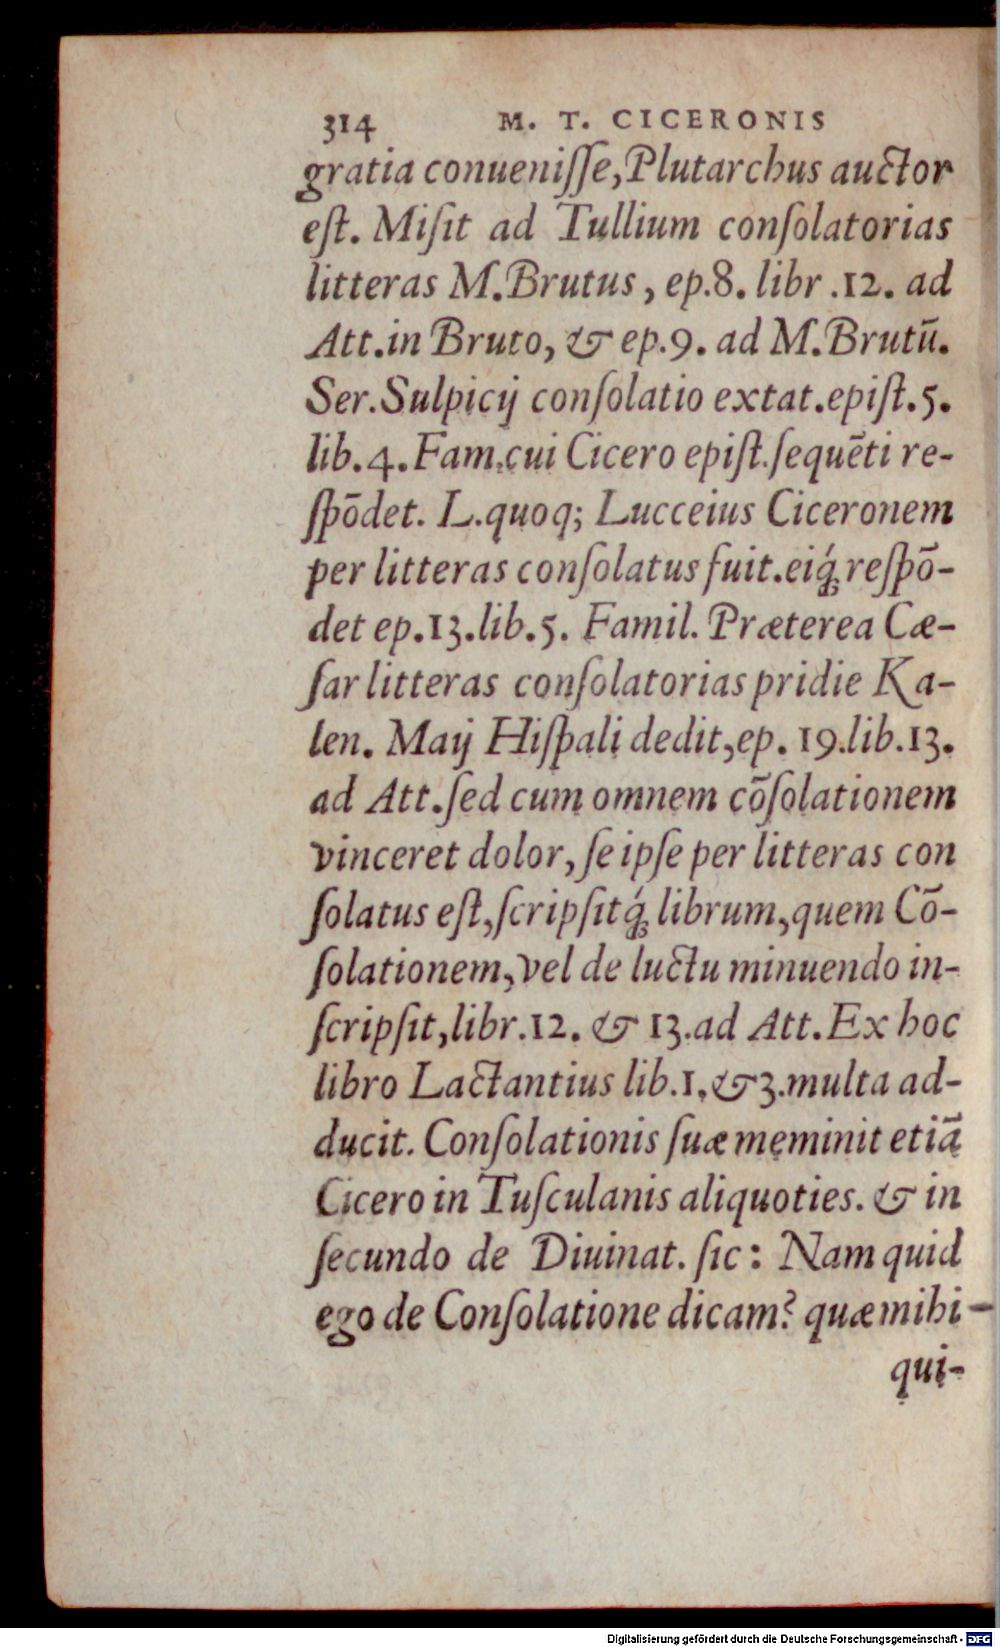 314 M. T. CICERONIS
gratia conueniſſe, Plutarchus auctor
eſt. Miſit ad Tullium conſolatorias
litteras M. Brutus, ep. 8. libr. 12. ad
Att. in Bruto, & ep. 9. ad M. Brutū.
Ser. Sulpicij conſolatio extat. epiſt. 5.
lib. 4. Fam. cui Cicero epiſt. ſequēti re-
ſpōdet. L. quoq; Lucceius Ciceronem
per litteras conſolatus fuit. eiq́; reſpō-
det ep. 13. lib. 5. Famil. Præterea Cæ-
ſar litteras conſolatorias pridie Ka-
len. Maij Hiſpali dedit, ep. 19. lib. 13.
ad Att. ſed cum omnem cōſolationem
vinceret dolor, ſe ipſe per litteras con
ſolatus eſt, ſcripſitq́; librum, quem Cō-
ſolationem, vel de luctu minuendo in-
ſcripſit, libr. 12. & 13. ad Att. Ex hoc
libro Lactantius lib. 1. & 3. multa ad-
ducit. Conſolationis ſuæ meminit etiā
Cicero in Tuſculanis aliquoties. & in
ſecundo de Diuinat. ſic: Nam quid
ego de Conſolatione dicam? quæ mihi
qui-
Digitalisierung gefördert durch die Deutsche Forschungsgemeinschaft - DFG